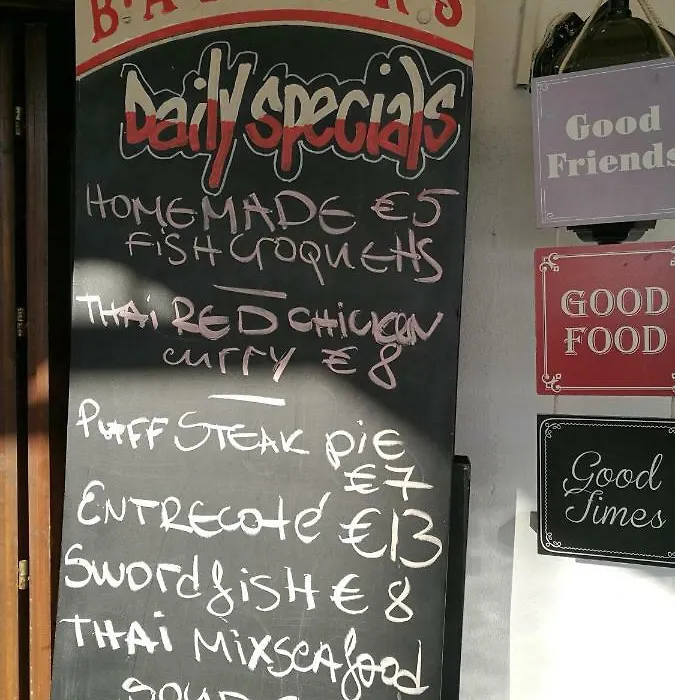 Daily Specials
HOMEMADE €5
FISH CROQUEttS
THAI RED CHICKEN
curry €8
PUFF STEAK piE
€7
ENTRECOtÉ €13
Swordfish €8
THAI MIXSEAfood
Good
Friends
GOOD
FOOD
Good
Times